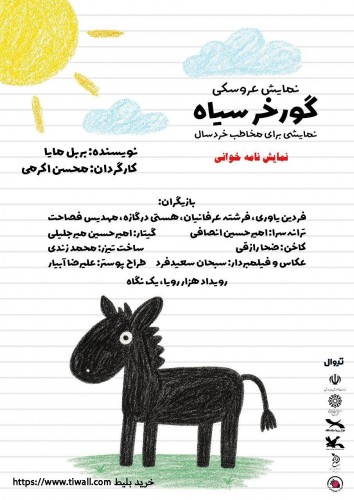 نمایش عروسکی
گورخر سیاه
نمایشی برای مخاطب خردسال
نمایش نامه خوانی
نویسنده: بربل هایا
کارگردان: محسن اکرمی
بازیگران:
فردین یاوری، فرشته عرفانیان، هستی درگازه، مهدیس فصاحت
ترانه سرا: امیرحسین انصافی گیتار: امیرحسین میرجلیلی
کاخن: ضحا رازقی ساخت تیزر: محمد زندی
عکاس و فیلمبردار: سبحان سعیدفرد طراح پوستر: علیرضا آبیار
رویداد هزار رویا، یک نگاه
تیوال
خرید بلیط https://www.tiwall.com